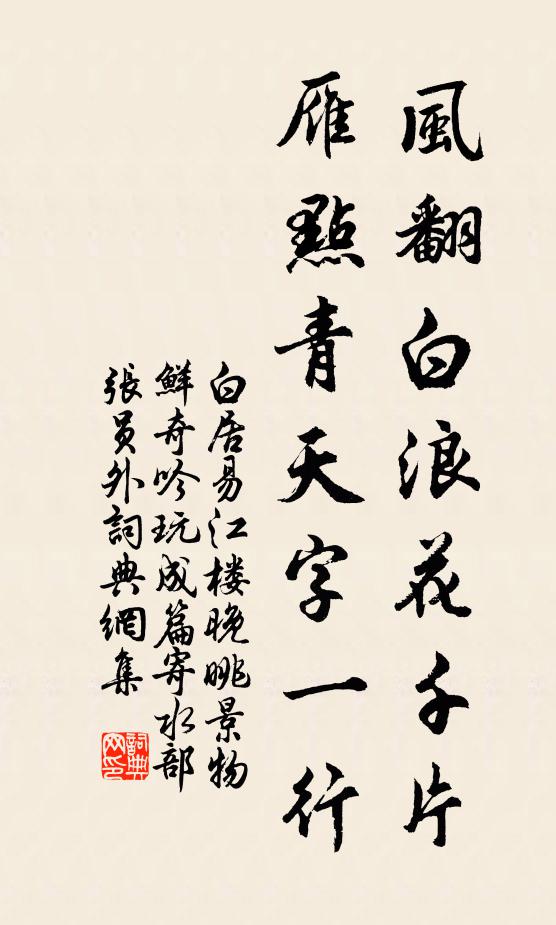 風翻白浪花千片
雁點青天字一行
白居易江楼晚眺景物
鮮奇吟玩成篇寄水部
張員外詞典網集
詞典
网印